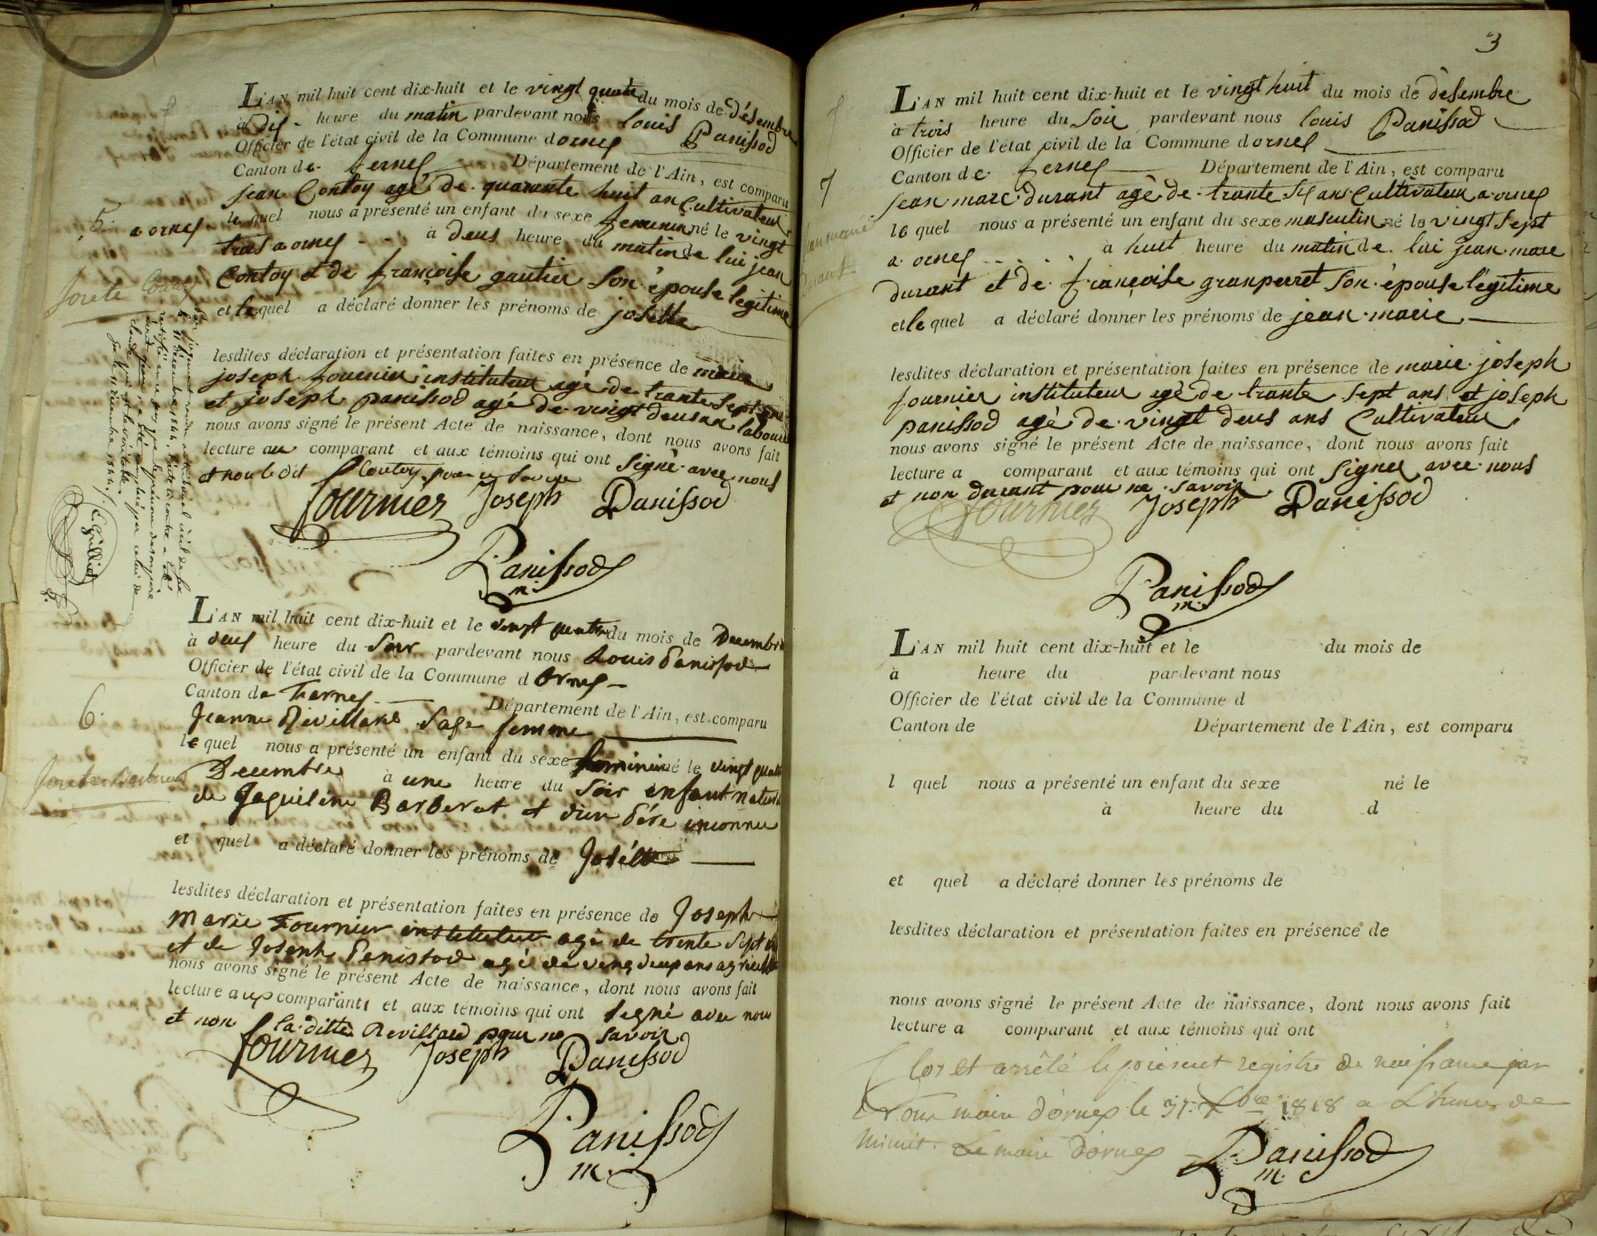 L'AN mil huit cent dix-huit et le vingt quatre du mois de désembre
à Dix heure du matin pardevant nous louis Panissod
Officier de l'état civil de la Commune dornex
Canton de fernex Département de l'Ain, est comparu
jean Contoy agé de quarante huit an Cultivateur
5. a ornex
le quel nous a présenté un enfant du sexe femenin né le vingt
tras a ornex à deus heure du matin de lui jean
Contoy et de françoise gautier son épouse legitime
et le quel a déclaré donner les prénoms de josette
lesdites déclaration et présentation faites en présence de marie
joseph fournier instituteur agé de trante sept ans
et joseph panissod agé de vingt deus an laboureur
nous avons signé le présent Acte de naissance, dont nous avons fait
lecture au comparant et aux témoins qui ont signé avec nous
et non le dit Contoy pour ne savoir
fournier Joseph Panissod
Panissod
m.
L'AN mil huit cent dix-huit et le vingt quatre du mois de Decembre
à deux heure du Soir pardevant nous Louis Panissod
Officier de l'état civil de la Commune d'Ornex
Canton de Fernex Département de l'Ain, est comparu
6.
Jeanne Revillard Sage femme
le quel nous a présenté un enfant du sexe feminin né le vingt quatre
Decembre à une heure du Soir enfant naturel
de Jaqueline Barberat et d'un Pére inconnu
et quel a déclaré donner les prénoms de Joséte
lesdites déclaration et présentation faites en présence de Joseph
Marie Fournier instituteur agé de trente Sept
et de Joseph Penissod agé de ving deux ans agriculteur
nous avons signé le présent Acte de naissance, dont nous avons fait
lecture aux comparant et aux témoins qui ont signé avec nous
et non la ditte Revillard pour ne savoir
fournier Joseph Panissod
Panissod
m.
3
L'AN mil huit cent dix-huit et le vingt huit du mois de désembre
à trois heure du Soir pardevant nous louis Panissod
Officier de l'état civil de la Commune dornex
Canton de fernex Département de l'Ain, est comparu
7
jean marc durant agé de trante six an Cultivateur a ornex
le quel nous a présenté un enfant du sexe masculin né le vingt sept
a ornex à huit heure du matin de lui jean marc
durant et de françoise granperret son épouse légitime
et le quel a déclaré donner les prénoms de jean marie
lesdites déclaration et présentation faites en présence de marie joseph
fournier instituteur agé de trante sept ans et joseph
panissod agé de vingt deus ans Cultivateur
nous avons signé le présent Acte de naissance, dont nous avons fait
lecture a comparant et aux témoins qui ont signer avec nous
et non durant pour ne savoir
fournier Joseph Panissod
Panissod
m.
L'AN mil huit cent dix-huit et le du mois de
à heure du pardevant nous
Officier de l'état civil de la Commune d
Canton de Département de l'Ain, est comparu
l quel nous a présenté un enfant du sexe né le
à heure du d
et quel a déclaré donner les prénoms de
lesdites déclaration et présentation faites en présence de
nous avons signé le présent Acte de naissance, dont nous avons fait
lecture a comparant et aux témoins qui ont
Clos et arrêté le présent registre de naissance par
Nous maire d'ornex le 31 Xbre 1818 a L'heure de
minuit. Le maire d'ornex
Panissod
m.